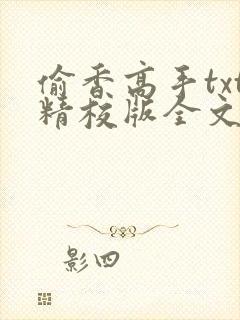 偷香高手txt
精校版全文
影四